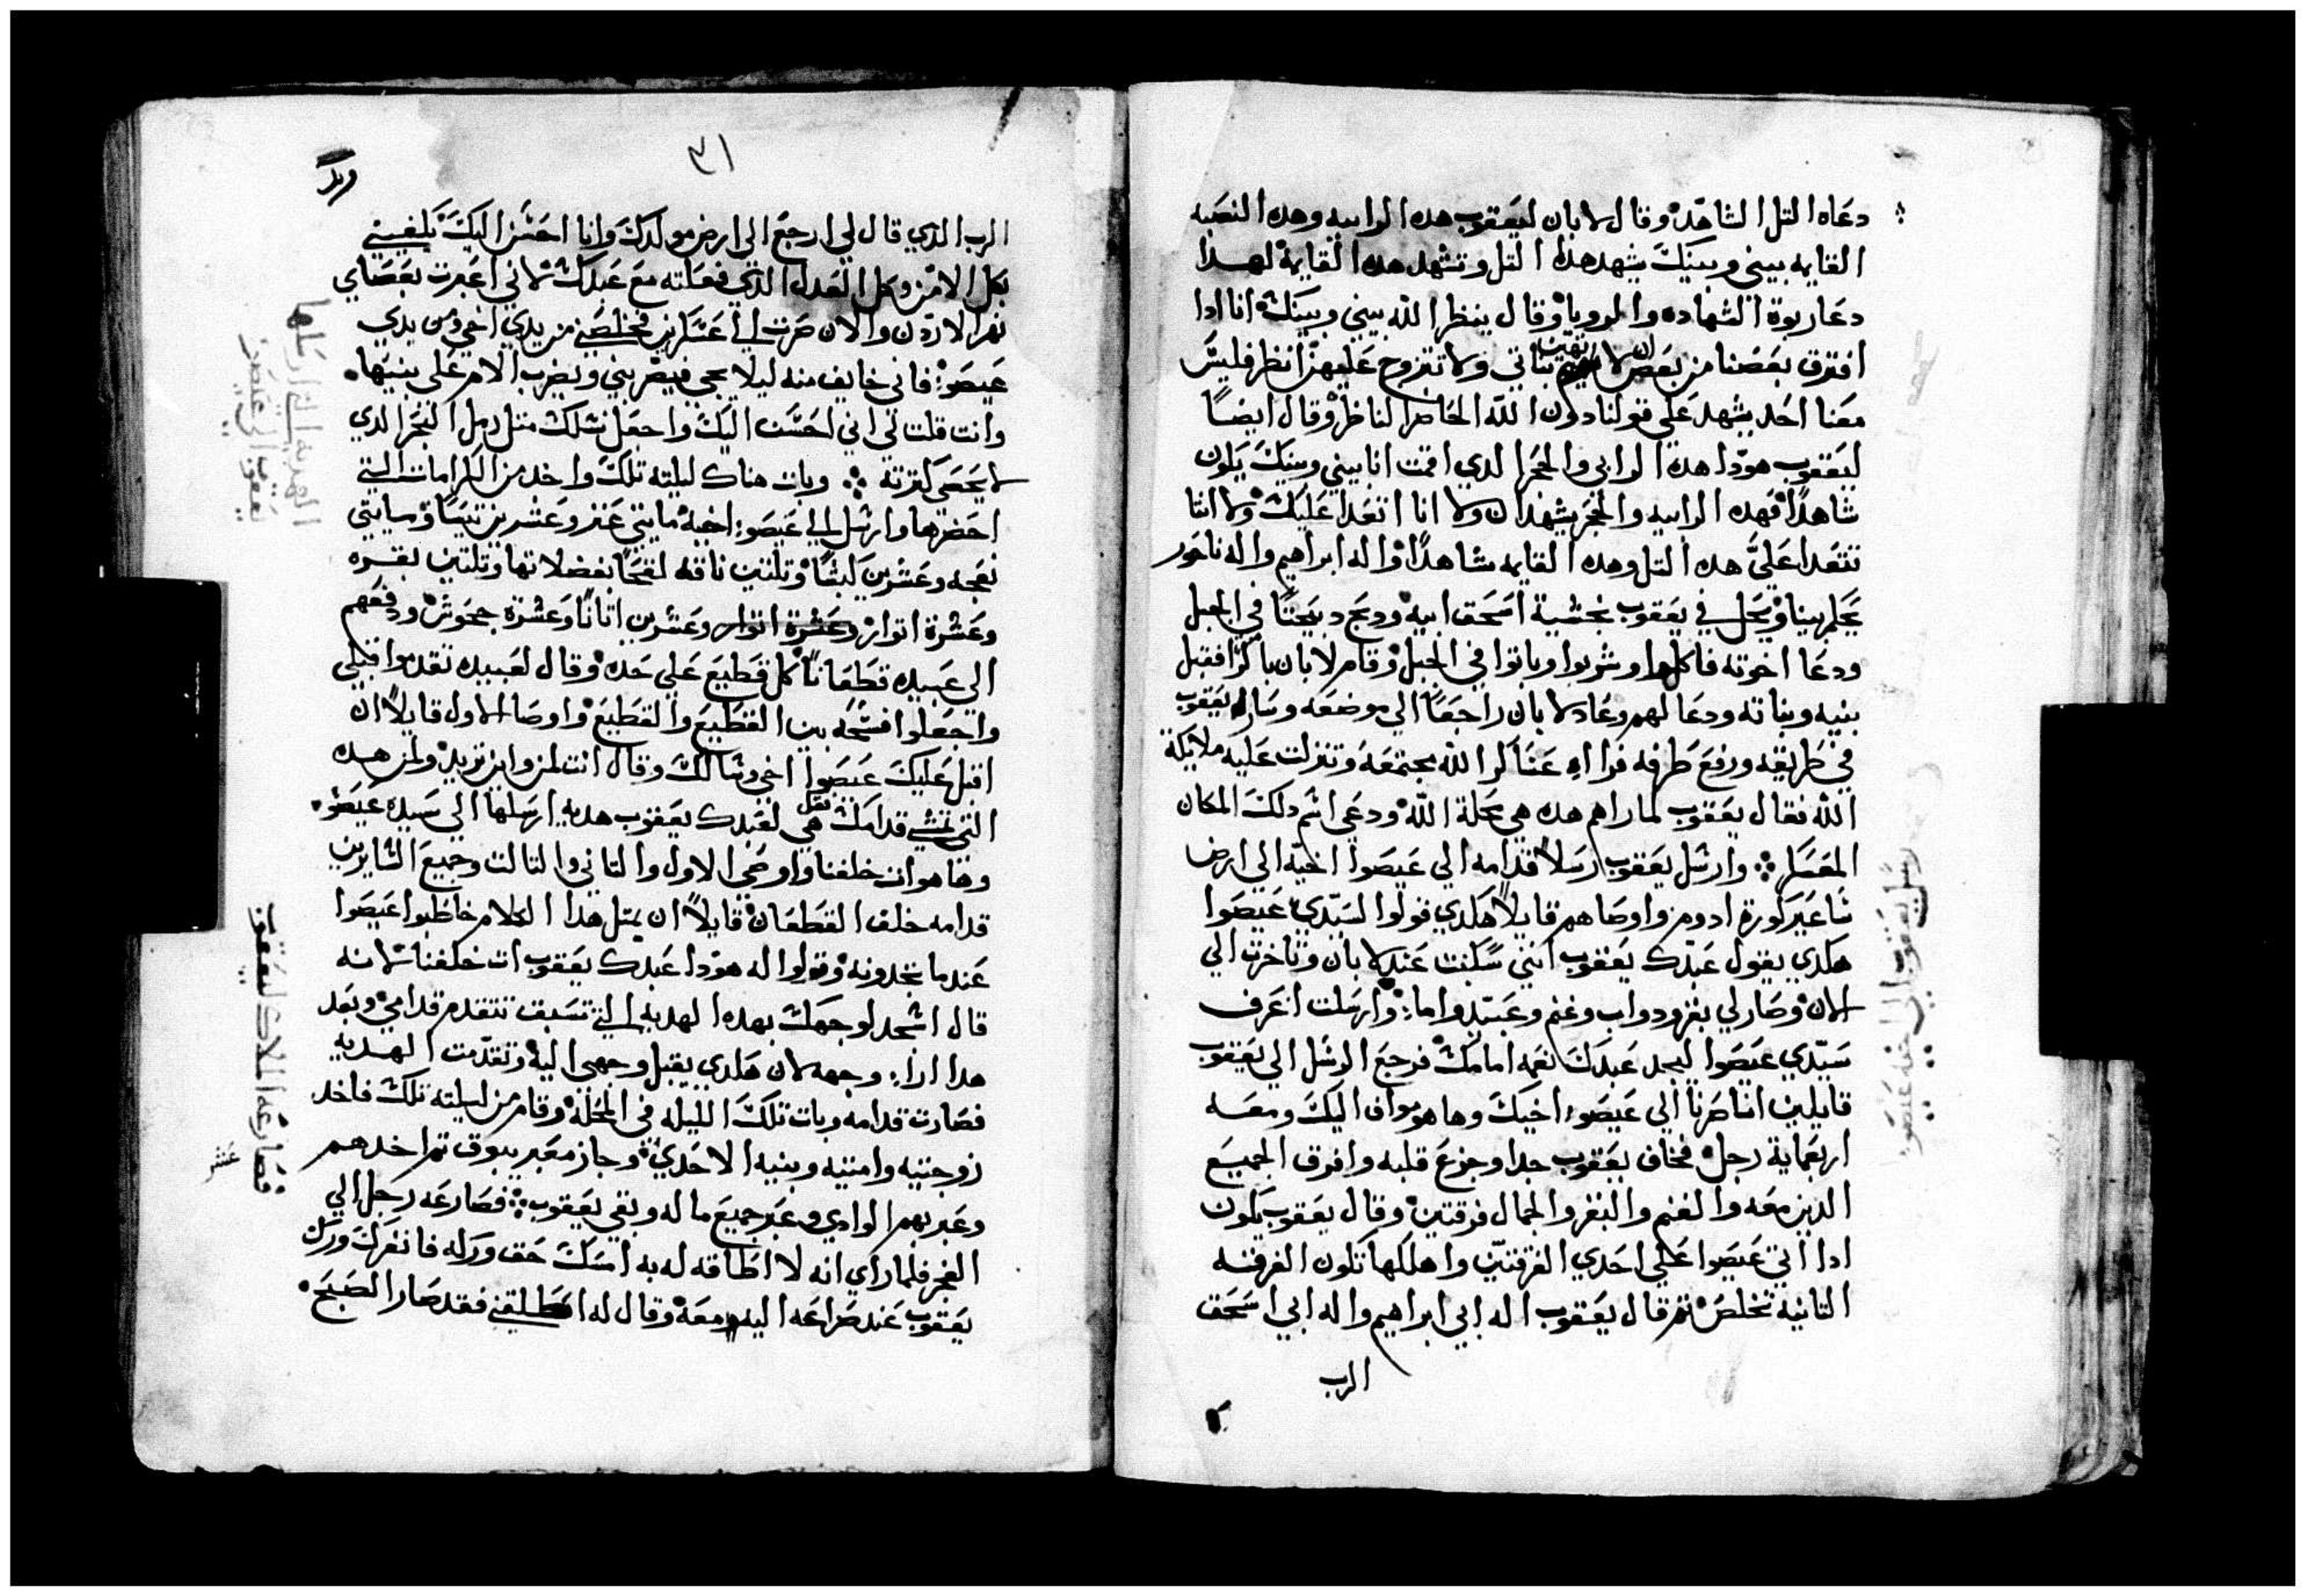 دعاه التل الشاهد وقال لابان ليعقوب هده الرابيه وهده النصبه
القايمه بيني وبينك يشهد هدا التل وتشهد هده القايمة لهدا
دعا ربوة الشهاده والمرويا وقال ينظر الله بيني وبينك اننا ادا
افترق بعضنا من بعض ان لا تهين بناتي ولا تتزوج عليهن انظر فليس
معنا احد يشهد على قولنا دون الله الحاضر الناظر وقال ايضاً
ليعقوب هودا هده الرابي والحجر الدي اقمت انا بيني وبينك يكون
شاهداً فهده الرابيه والحجر يشهدان ولا انا اتعدا عليك ولا انتا
تتعدا عليّ هده التل وهده القايمه شاهداً واله ابراهيم واله ناحور
يحكم بينا وحلف يعقوب بخشية اسحق ابيه ودبح دبيحتاً في الجبل
ودعا اخوته فاكلوا وشربوا وباتوا في الجبل وقام لابان باكراً فقبل
بنيه وبناته ودعا لهم وعاد لابان راجعاً الى موضعه وسار يعقوب
في طريقه ورفع طرفه فرا اه عساكر الله مجتمعه وتنزلت عليه ملايكة
الله فقال يعقوب لما راهم هده هي محلة الله ودعى اسم دلك المكان
المعسكر وارسل يعقوب رسلاً قدامه الي عيصوا اخيه الي ارض
ساعير كورة ادوم واوصاهم قايلاً هكدي قولوا لسيدي عيصوا
هكدي يقول عبدك يعقوب انني سكنت عند لابان وتاخرت الي
الان وصار لي بقر ودواب وغنم وعبيد واماء وارسلت اعرف
سيدي عيصوا ليجد عبدك نعمه امامك فرجع الرسل الي يعقوب
قايلين اننا صرنا الي عيصوا اخيك وها هو موافي اليك ومعه
اربعماية رجل فخاف يعقوب جدا وجزع قلبه وافرق الجميع
الدين معه والغنم والبقر والجمال فرقتين وقال يعقوب يكون
ادا اتي عيصوا علي احدي الفرقتين واهلكها تكون الفرقه
التانيه تخلص تم قال يعقوب اله ابي ابراهيم واله ابي اسحق
الرب
رسل يعقوب الي اخيه عيصو
٣١
الرب الدي قال لي ارجع الى ارض مولدك وانا احسن اليك يكفيني
بكل الامن وكل العدل الدي فعلته مع عبدك لاني اعبرت بعصاي
نهر الاردن والان صرت الي عسكرين فخلصني من يدي اخي من يدي
عيصوا فاني خايف منه ليلا يجي فيضربني ويضرب الام على بنيها
وانت قلت لي اني احسن اليك واجعل نسلك متل رمل البحر الدي
لا يحصى كترته وبات هناك ليلته تلك واخد من الكرامات التي
احضرها وارسل الي عيصوا اخيه مايتي عنز وعشرين تيساً ومايتي
نعجه وعشرين كبشاً وتلتين ناقه لقحاً بفضلاتها وتلتين بقره
وعشرة اتوار وعشرة اتوار وعشرين اتاناً وعشرة جحوش ودفعهم
الى عبيده قطعاناً كل قطيع على حده وقال لعبيده تقدموا قبلي
واجعلوا فسحه بين القطيع والقطيع واوصا الاول قايلاً ان
اقبل عليك عيصوا اخي وسالك وقال انت لمن واين تريد ولمن هده
التي تمشي قدامك فقل هي لعبدك يعقوب هديه ارسلها الي سيده عيصو
وها هو ات خلفنا واوصى الاول والتاني والتالت وجميع السايرين
قدامه خلف القطعان قايلاً ان بمتل هدا الكلام خاطبوا عيصوا
عندما تجدونه وقولوا له هودا عبدك يعقوب ات خلفنا لانه
قال اسجد لوجهك بهده الهديه التي تسبق تتقدم قدامي وبعد
هدا اراء وجهه لان هكدي يقبل وجهي اليه وتقدمت الهديه
فصارت قدامه وبات تلك الليله في المحله وقام من ليلته تلك فاخد
زوجتيه وامتيه وبنيه الاحدي وجاز معبر يبوق تم اخدهم
وعبر بهم الوادي وعبر جميع ما له وبقي يعقوب فصارعه رجل الي
الفجر فلما راي انه لا اطاقه له به امسك حق وركه فانفرك ورك
يعقوب عند صراعه اليه ومعه وقال له اطلقني فقد صار الصبح
الهديه التي ارسلها
يعقوب الي عيصو
فصارعه الملاك ليعقوب